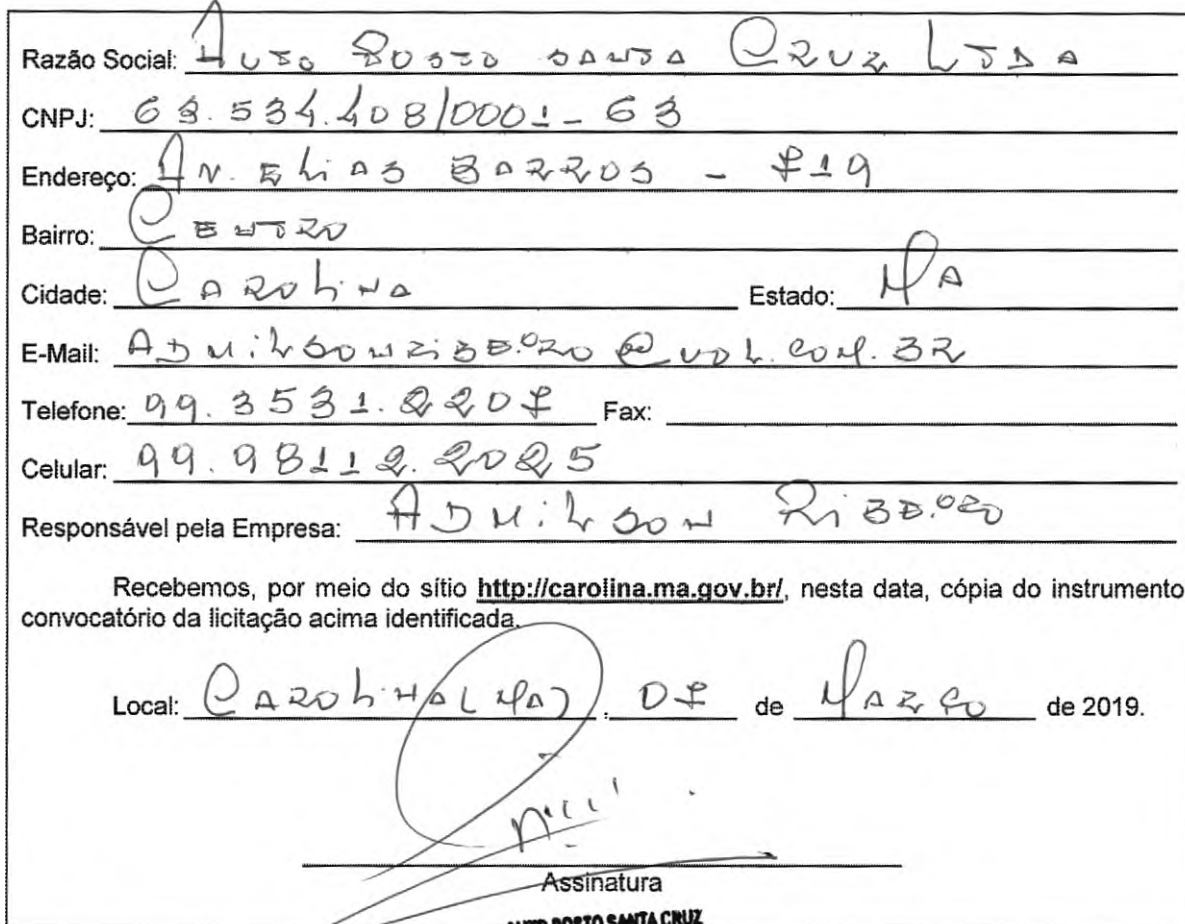 Razão Social: AUTO POSTO SANTA CRUZ LTDA
CNPJ: 63.534.408/0001-63
Endereço: AV. ELIAS BARROS - 719
Bairro: CENTRO
Cidade: CAROLINA Estado: MA
E-Mail: ADMILSONRIBEIRO@UOL.COM.BR
Telefone: 99.3531.2207 Fax:
Celular: 99.98112.2025
Responsável pela Empresa: ADMILSON RIBEIRO
Recebemos, por meio do sítio http://carolina.ma.gov.br/, nesta data, cópia do instrumento
convocatório da licitação acima identificada.
Local: CAROLINA (MA), 07 de MARÇO de 2019.
Assinatura
AUTO POSTO SANTA CRUZ